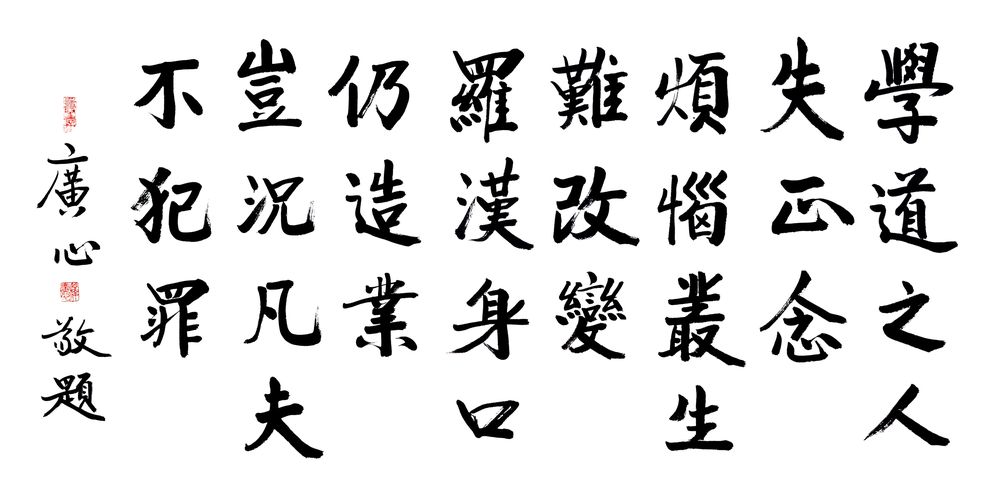 學道之人
失正念
煩惱叢生
難改變
羅漢身口
仍造業
豈況凡夫
不犯罪
廣心敬題